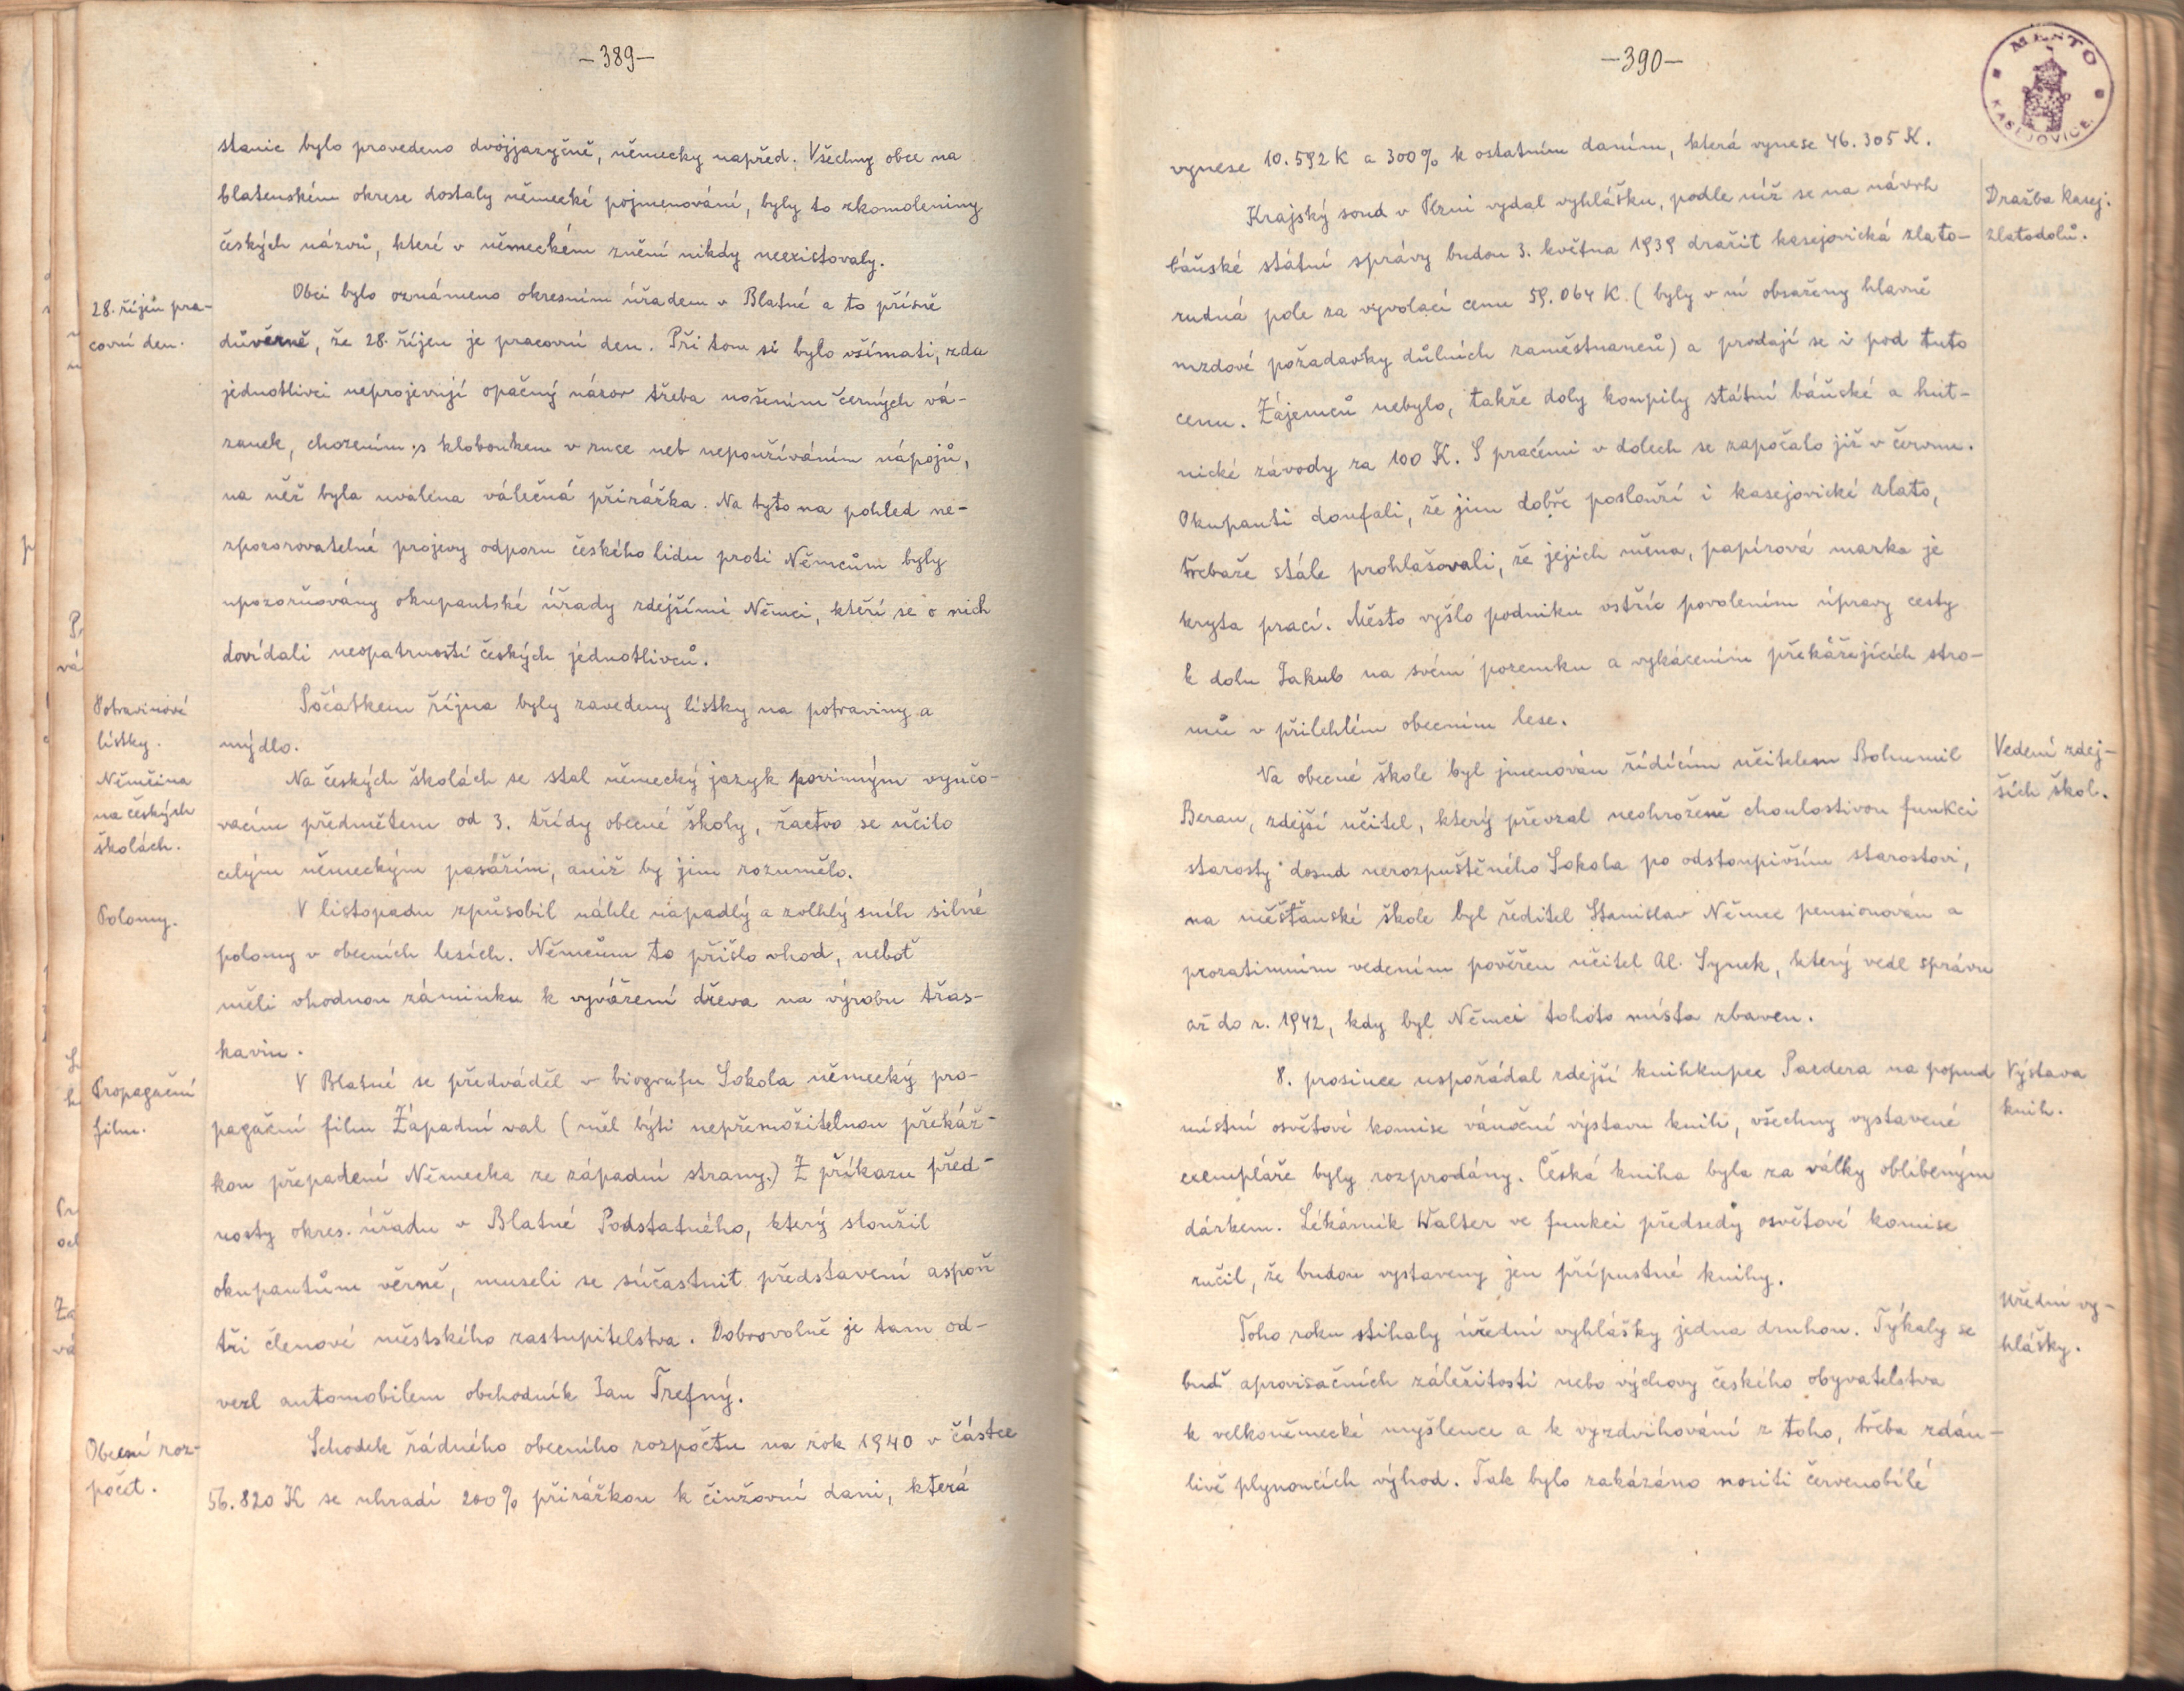 -389-
stanic bylo provedeno dvojjazyčně, německy napřed. Všechny obce na
blatenském okrese dostaly německé pojmenování, byly to zkomoleniny
českých názvů, které v německém znění nikdy neexistovaly.
28. říjen pra-
covní den.
Obci bylo oznámeno okresním úřadem v Blatné a to přísně
důvěrně, že 28. říjen je pracovní den. Při tom si bylo všímati, zda
jednotlivci neprojevují opačný názor třeba nošením černých vá-
zanek, chozením s kloboukem v ruce neb nepoužíváním nápojů,
na něž byla uvalena válečná přirážka. Na tyto na pohled ne-
zpozorovatelné projevy odporu českého lidu proti Němcům byly
upozorňovány okupantské úřady zdejšími Němci, kteří se o nich
dovídali neopatrností českých jednotlivců.
Potravinové
lístky.
Počátkem října byly zavedeny lístky na potraviny a
mýdlo.
Němčina
na českých
školách.
Na českých školách se stal německý jazyk povinným vyučo-
vacím předmětem od 3. třídy obecné školy, žactvo se učilo
celým německým pasážím, aniž by jim rozumělo.
Polomy.
V listopadu způsobil náhle napadlý a zvlhlý sníh silné
polomy v obecních lesích. Němcům to přišlo vhod, neboť
měli vhodnou záminku k vyvážení dřeva na výrobu třas-
kavin.
Propagační
film.
V Blatné se předváděl v biografu Sokola německý pro-
pagační film Západní val (měl býti nepřemožitelnou překáž-
kou přepadení Německa ze západní strany.) Z příkazu před-
nosty okres. úřadu v Blatné Podstatného, který sloužil
okupantům věrně, museli se súčastnit představení aspoň
tři členové městského zastupitelstva. Dobrovolně je tam od-
vezl automobilem obchodník Jan Trefný.
Obecní roz-
počet.
Schodek řádného obecního rozpočtu na rok 1940 v částce
56.820 K se uhradí 200% přirážkou k činžovní dani, která
-390-
MĚSTO
KASEJOVICE
vynese 10.592 K a 300% k ostatním daním, která vynese 46.305 K.
Dražba kasej.
zlatodolů.
Krajský soud v Plzni vydal vyhlášku, podle níž se na návrh
báňské státní správy budou 3. května 1939 dražit kasejovická zlato-
rudná pole za vyvolací cenu 59.064 K. (byly v ní obsaženy hlavně
mzdové požadavky důlních zaměstnanců) a prodají se i pod tuto
cenu. Zájemců nebylo, takže doly koupily státní báňské a hut-
nické závody za 100 K. S pracemi v dolech se započalo již v červnu.
Okupanti doufali, že jim dobře poslouží i kasejovické zlato,
třebaže stále prohlašovali, že jejich měna, papírová marka je
kryta prací. Město vyšlo podniku vstříc povolením úpravy cesty
k dolu Jakub na svém pozemku a vykácením překážejících stro-
mů v přilehlém obecním lese.
Vedení zdej-
ších škol.
Na obecné škole byl jmenován řídícím učitelem Bohumil
Beran, zdejší učitel, který převzal neohroženě choulostivou funkci
starosty dosud nerozpuštěného Sokola po odstoupivším starostovi,
na měšťanské škole byl ředitel Stanislav Němec pensionován a
prozatimním vedením pověřen učitel Al. Synek, který vedl správu
až do r. 1942, kdy byl Němci tohoto místa zbaven.
Výstava
knih.
8. prosince uspořádal zdejší knihkupec Paedera na popud
místní osvětové komise vánoční výstavu knih, všechny vystavené
exempláře byly rozprodány. Česká kniha byla za války oblíbeným
dárkem. Lékárník Walter ve funkci předsedy osvětové komise
ručil, že budou vystaveny jen přípustné knihy.
Úřední vy-
hlášky.
Toho roku stíhaly úřední vyhlášky jedna druhou. Týkaly se
buď aprovisačních záležitostí nebo výchovy českého obyvatelstva
k velkoněmecké myšlence a k vyzdvihování z toho, třeba zdán-
livě plynoucích výhod. Tak bylo zakázáno nositi červenobílé